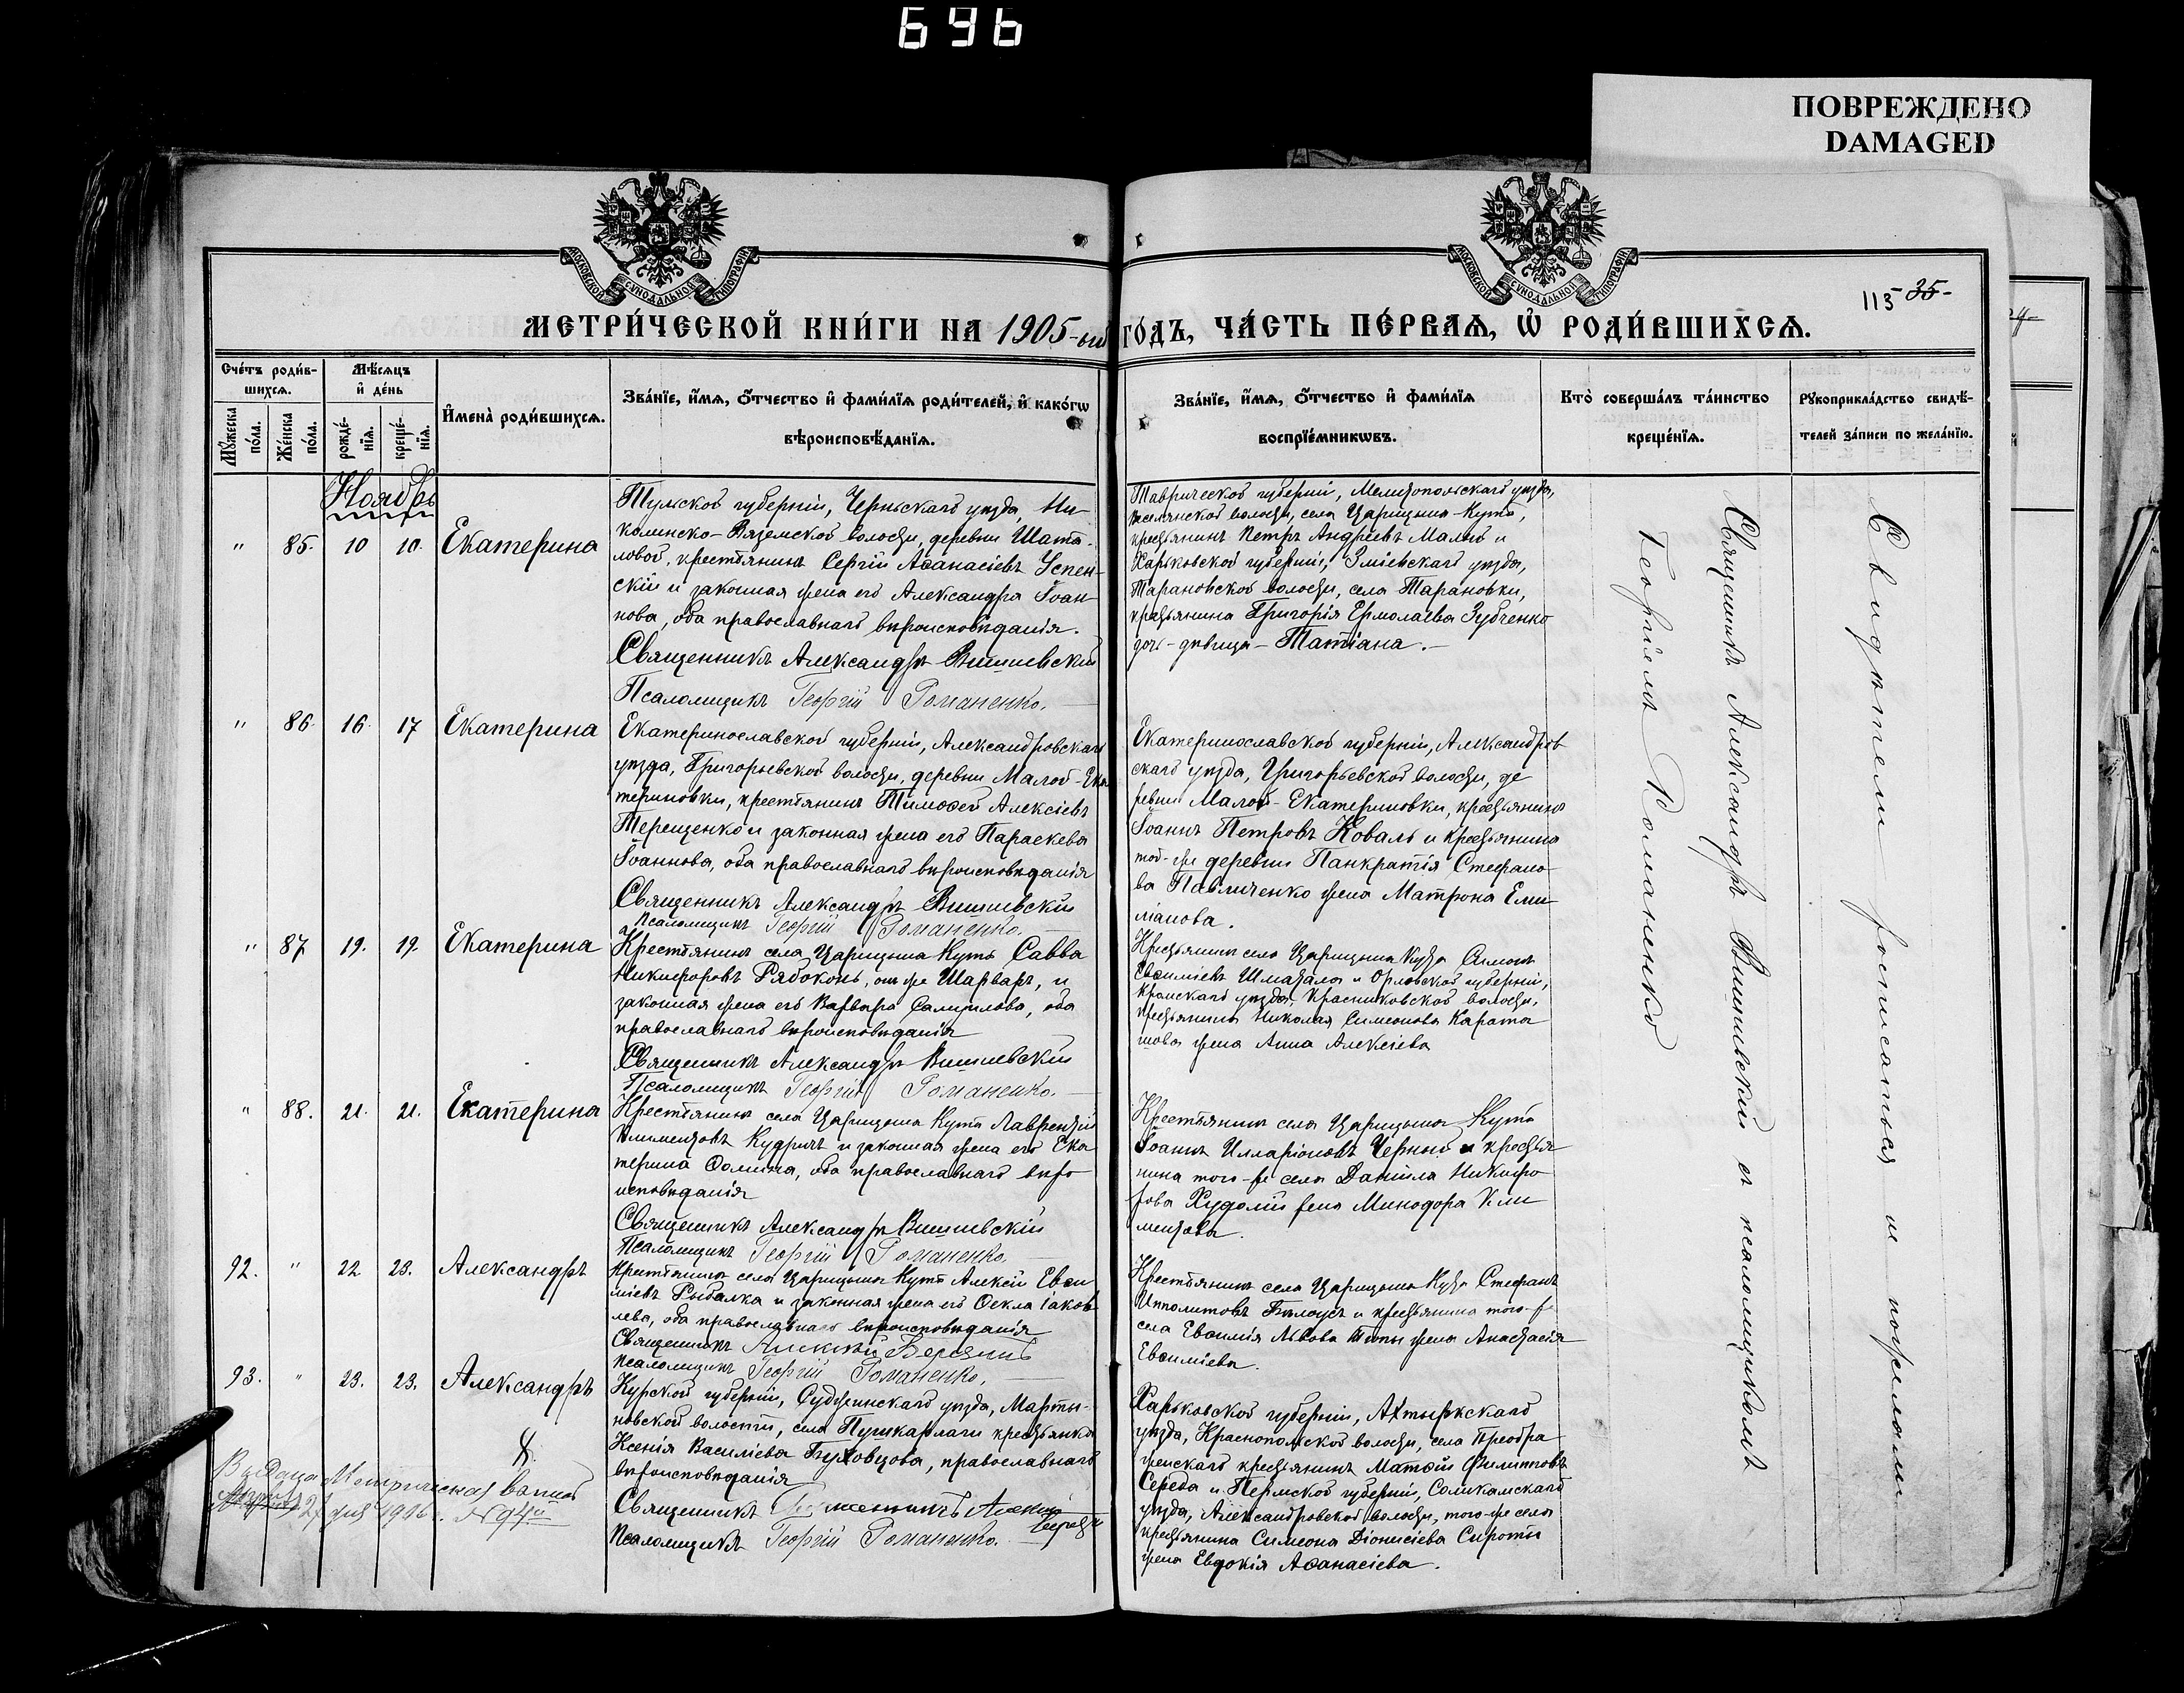 696
ПОВРЕЖДЕНО
DAMAGED
МОСКОВСКОЙ СѴНОДАЛЬНОЙ ТИПОГРАФІИ
МОСКОВСКОЙ СѴНОДАЛЬНОЙ ТИПОГРАФІИ
113 35-
МЕТРИ́ЧЕСКОЙ КНИ́ГИ НА 1905-ый ГО́ДЪ, ЧА́СТЬ ПЕ́РВАѦ, Ѡ҆ РОДИ́ВШИХСѦ.
Сче́тъ роди́в-
шихсѧ.
Мѣ́сѧцъ
и҆ де́нь
Мꙋ́жеска по́ла.
Же́нска по́ла.
рожде́-
нїѧ.
креще́-
нїѧ.
И҆мена̀ роди́вшихсѧ.
Зва́нїе, и҆́мѧ, ѻ҆́тчество и҆ фами́лїѧ роди́телей, и҆ како́гѡ
вѣроисповѣ́данїѧ.
Зва́нїе, и҆́мѧ, ѻ҆́тчество и҆ фами́лїѧ
воспрїе́мникѡвъ.
Кто̀ соверша́лъ та́инство
креще́нїѧ.
Рꙋкоприкла́дство свидѣ́-
телей за́писи по жела́нїю.
Ноябрь
" 85. 10 10. Екатерина
Тульской губерніи, Чернскаго уѣзда, Ни-
кольско-Вяземской волости, деревни Шата-
ловой, крестьянинъ Сергій Аѳанасіевъ Успен-
скій и законная жена его Александра Іоан-
нова, оба православнаго вѣроисповѣданія.
Священникъ Александръ Вишневскій
Псаломщикъ Георгій Романенко.
Таврической губерніи, Мелитопольскаго уѣзда,
волости, села Царицына-Кута,
крестьянинъ Петръ Андреевъ Малый и
Харьковской губерніи, Зміевскаго уѣзда,
Тарановской волости, села Тарановки,
крестьянина Григорія Ермолаева Зубченко
дочь-дѣвица-Татіана.
" 86. 16. 17 Екатерина
Екатеринославской губерніи, Александровскаго
уѣзда, Григорьевской волости, деревни Малой-Ека
териновки, крестьянинъ Тимоѳей Алексіевъ
Терещенко и законная жена его Параскева
Іоаннова, оба православнаго вѣроисповѣданія
Священникъ Александръ Вишневскій
Псаломщикъ Георгій Романенко.
Екатеринославской губерніи, Александров
скаго уѣзда, Григорьевской волости, де
ревни Малой-Екатериновки, крестьянинъ
Іоаннъ Петровъ Коваль и крестьянина
той-же деревни Панкратія Стефано-
ва Павличенко жена Матрона Еми-
ліанова.
" 87 19. 19. Екатерина
Крестьянинъ села Царицына Кута Савва
Никифоровъ Рябоконь, онъ же Шарваръ, и
законная жена его Варвара Самуилова, оба
православнаго вѣроисповѣданія
Священникъ Александръ Вишневскій
Псаломщикъ Георгій Романенко.
Крестьянинъ села Царицына Кута Симонъ
Евѳиміевъ Шматала и Орловской губерніи,
Кромскаго уѣзда, Красниковской волости,
крестьянина Николая Симеонова Карата
шова жена Анна Алексіева
" 88. 21. 21. Екатерина
Крестьянинъ села Царицына Кута Лаврентій
Климентовъ Кудричъ и законная жена его Ека
терина Ѳомина, оба православнаго вѣро
исповѣданія
Священникъ Александръ Вишневскій
Псаломщикъ Георгій Романенко.
Крестьянинъ села Царицына Кута
Іоаннъ Илларіоновъ Черный и крестья
нина того-же села Даніила Никифо
рова Худолій жена Минодора Кли
ментова.
92. " 22 23. Александръ
Крестьянинъ села Царицына Кута Алексій Евѳи
міевъ Рыбалка и законная жена его Ѳекла Іаков
лева, оба православнаго вѣроисповѣданія
Священникъ Алексій Березинъ
Псаломщикъ Георгій Романенко.
Крестьянинъ села Царицына Кута Стефанъ
Ипполитовъ Бѣлоусъ и крестьянина того-же
села Евѳимія Львова жена Анастасія
Евѳиміева.
93. " 23. 23. Александръ
Курской губерніи, Суджанскаго уѣзда, Марты-
новской волости, села Пушкарнаги крестьянка
Ксенія Василіева Буховцова, православнаго
вѣроисповѣданія
Священникъ Алексій
Псаломщикъ Георгій Романенко.
Харьковской губерніи, Ахтырскаго
уѣзда, Краснопольской волости, села Преобра
женскаго крестьянинъ Матѳій Филипповъ
Середа и Пермской губерніи, Соликамскаго
уѣзда, Александровской волости, того-же села
крестьянина Симеона Діонисіева Сироты
жена Евдокія Аѳанасіева.
Выдана Метрическая выпись
27 1926 г. №94й
Священникъ Александръ Вишневскій съ псаломщикомъ
Георгіемъ Романенко
Свидѣтели росписаться не пожелали